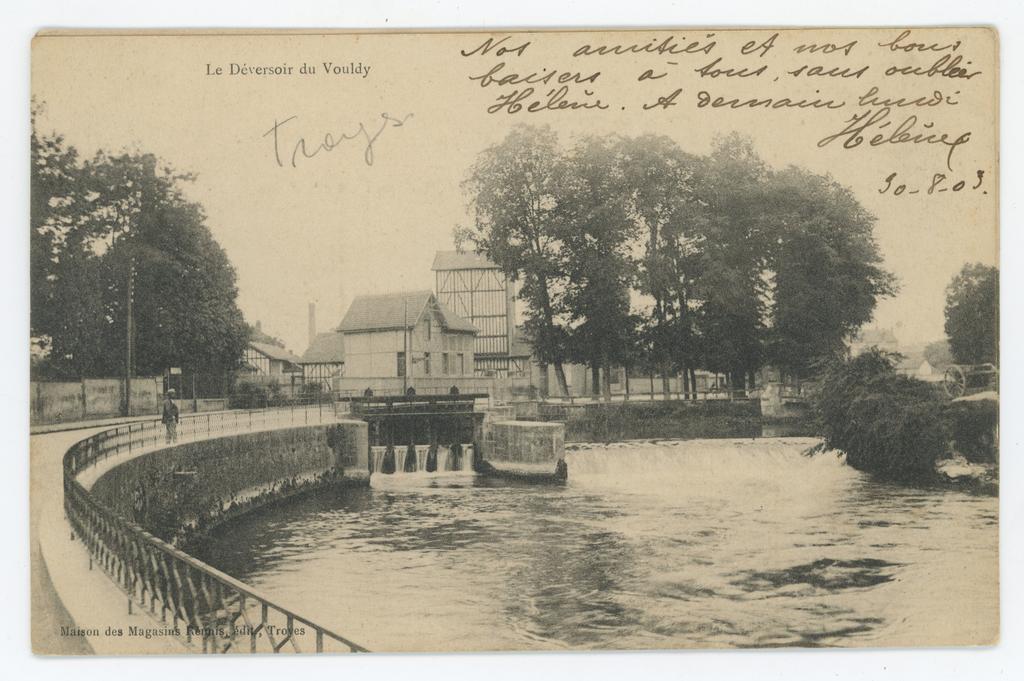 Le Déversoir du Vouldy
Nos amitiés et nos bons
baisers à tous, sans oublier
Hélène. A demain lundi
Hélène
30-8-03.
Troyes
Maison des Magasins Réunis, édit., Troyes